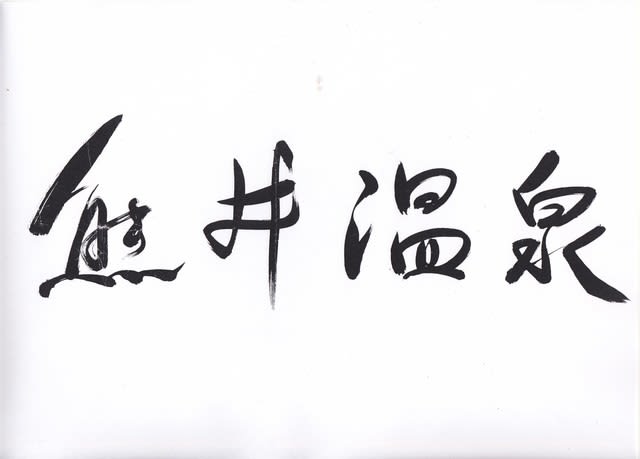 熊井温泉